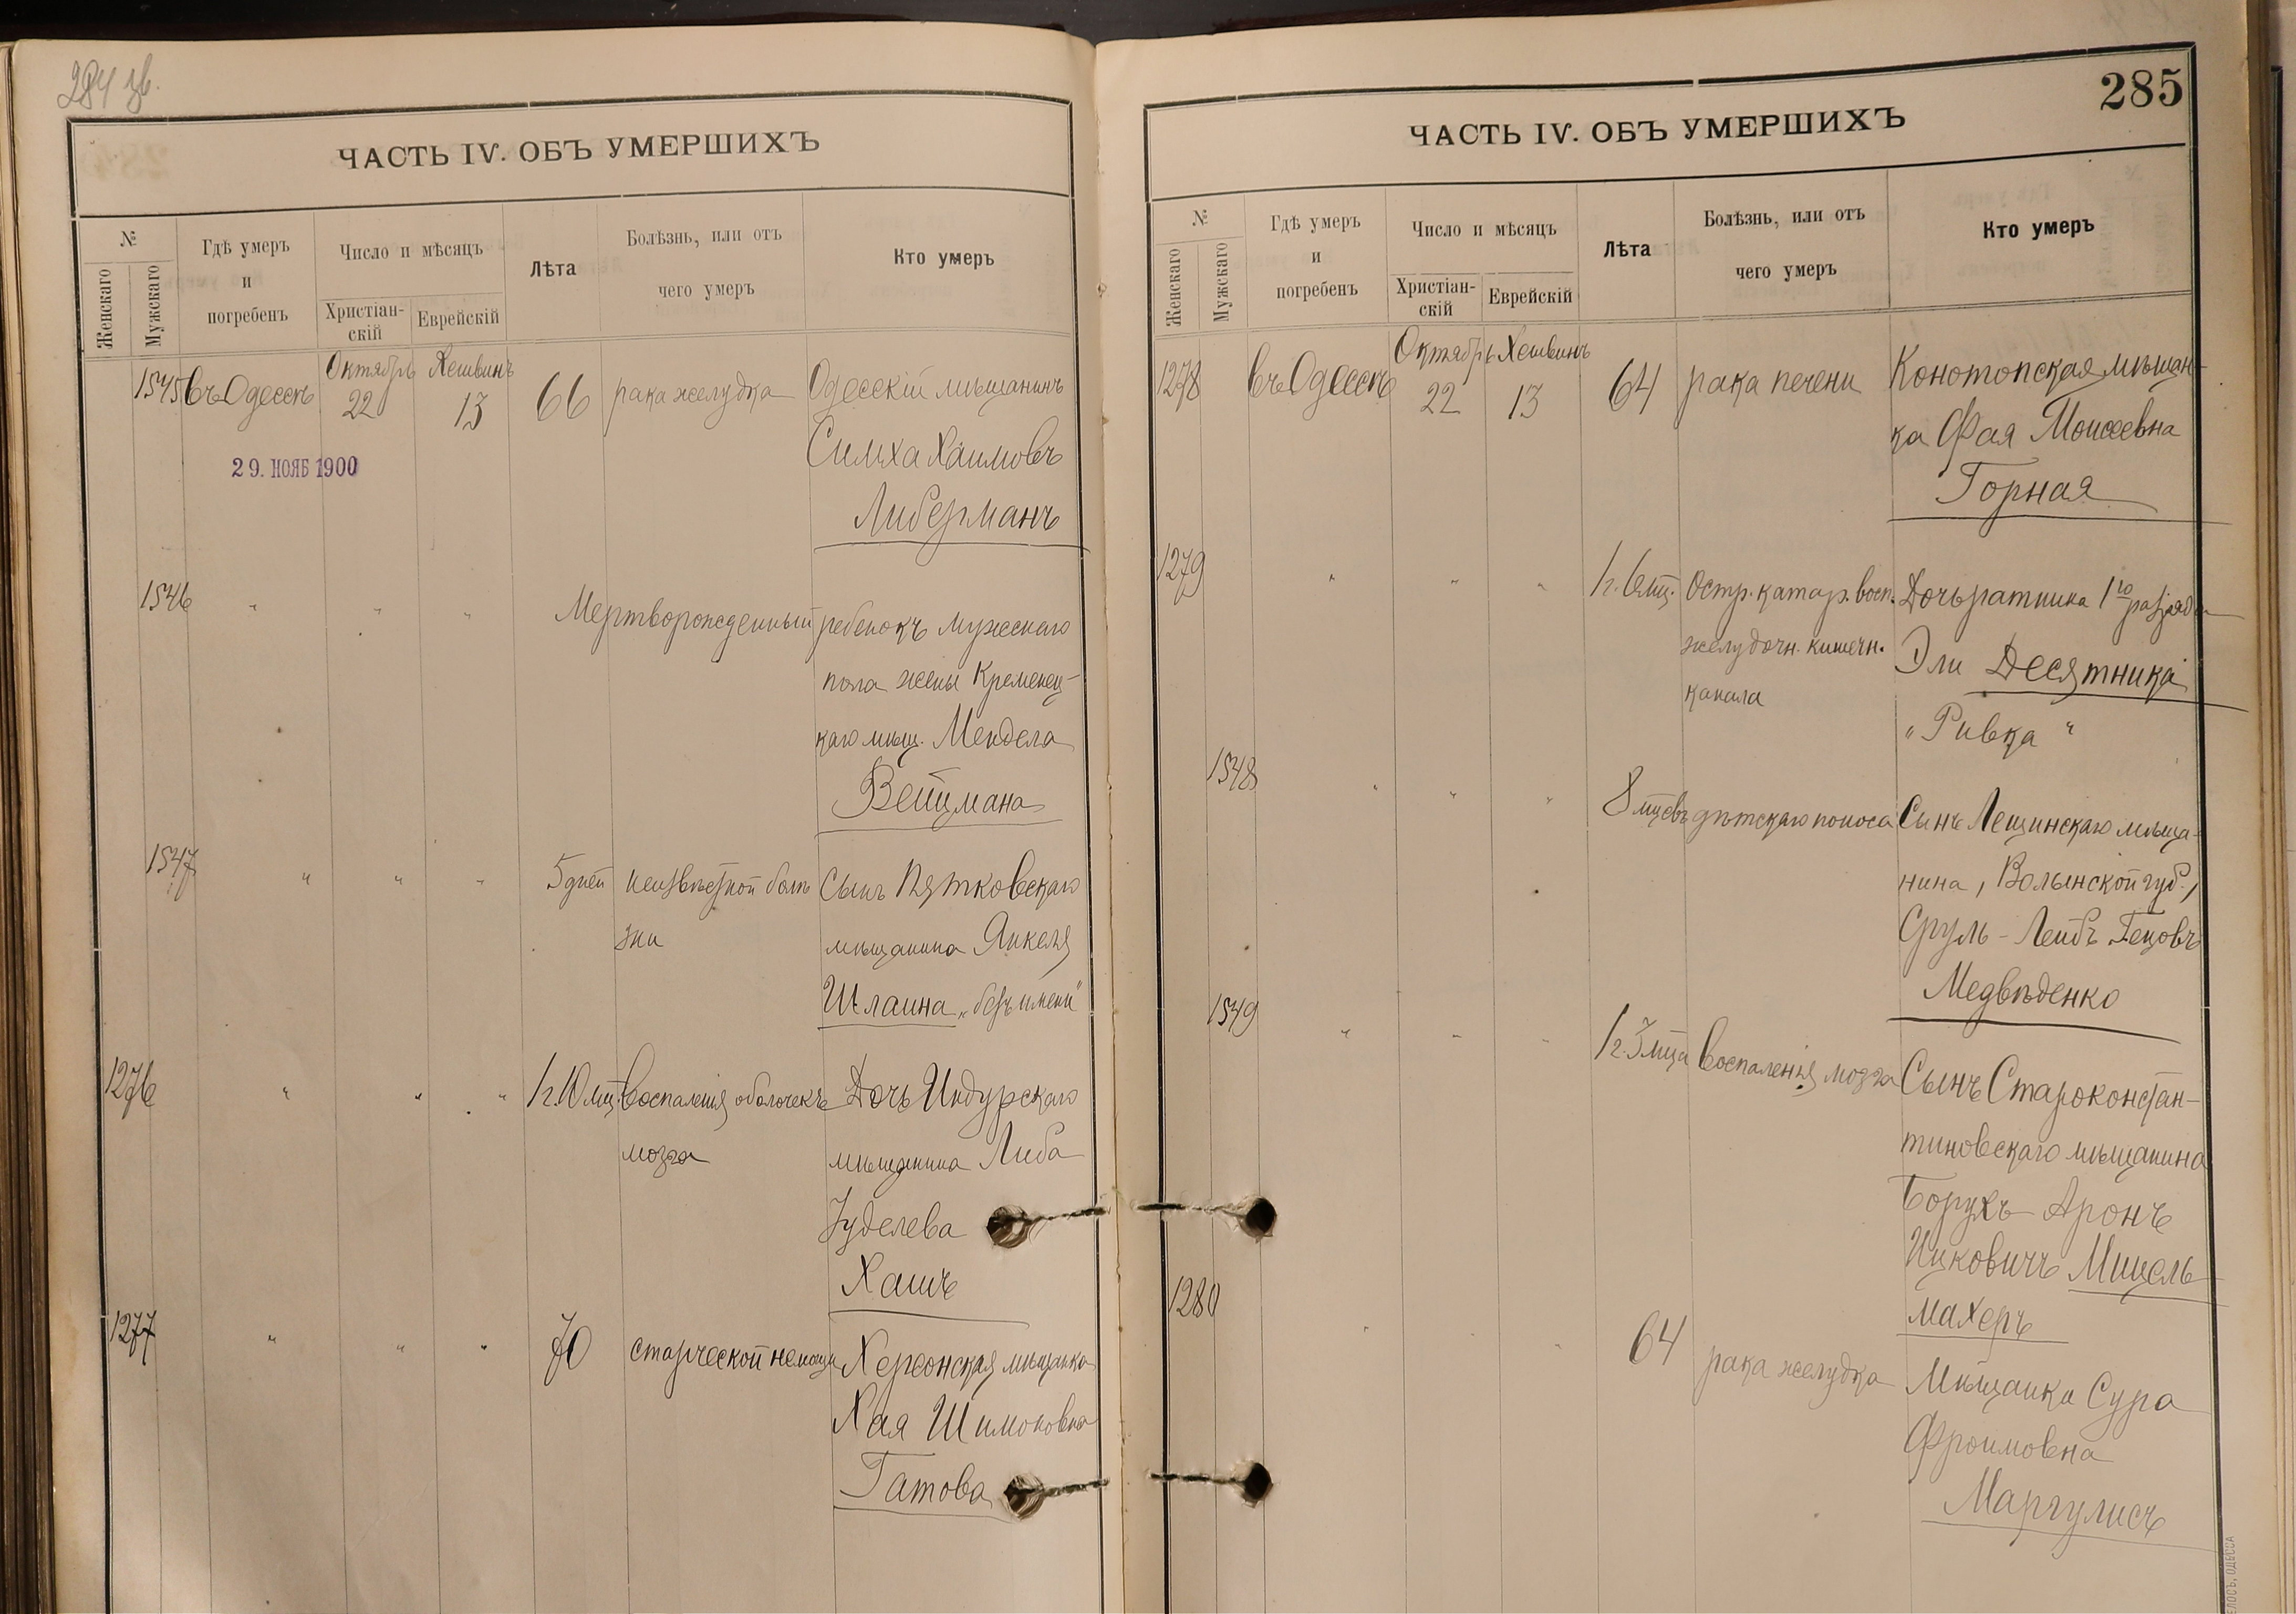 284 зв.
ЧАСТЬ IV. ОБЪ УМЕРШИХЪ
№
Женскаго
Мужскаго
Гдѣ умеръ
и
погребенъ
Число и мѣсяцъ
Христіан-
скій
Еврейскій
Лѣта
Болѣзнь, или отъ
чего умеръ
Кто умеръ
1545 въ Одессѣ Октябрь 22 Хешвинъ 13 66 рака желудка Одесскій мѣщанинъ
Симха Хаимовъ
Либерманъ
29. НОЯБ 1900
1546 " " " Мертворожденный ребенокъ мужескаго
пола жены Кременец-
каго мѣщ. Менделя
Вейцмана
1547 " " " 5 дней неизвѣстной болѣ Сынъ Пятковскаго
зни мѣщанина Янкеля
Шлаина „безъ имени"
1276 " " " 1 г. 10 мц. воспаленія оболочекъ Дочь Индурскаго
мозга мѣщанина Либа
Іуделева
Хашъ
1277 " " " 70 старческой немощи Херсонская мѣщанка
Хая Шимоновна
Гатова
285
ЧАСТЬ IV. ОБЪ УМЕРШИХЪ
№
Женскаго
Мужскаго
Гдѣ умеръ
и
погребенъ
Число и мѣсяцъ
Христіан-
скій
Еврейскій
Лѣта
Болѣзнь, или отъ
чего умеръ
Кто умеръ
1278 въ Одессѣ Октябрь 22 Хешвинъ 13 64 рака печени Конотопская мѣщан-
ка Фая Моисеевна
Горная
1279 " " " 1 г. 6 мц. Остр. катар. восп. Дочь ратника 1го разряда
желудочн. кишечн. Эли Десятника
канала „Ривка"
1548 " " " 8 мцевъ дѣтскаго поноса Сынъ Лещинскаго мѣща-
нина, Волынской губ.,
Сруль-Лейбъ Гецовъ
Медвѣденко
1549 " " " 1 г. 3 мца воспаленія мозга Сынъ Староконстан-
тиновскаго мѣщанина
Борухъ-Аронъ
Ицковичъ Мицель-
махеръ
1280 " " " 64 рака желудка Мѣщанка Сура
Фроимовна
Маргулисъ